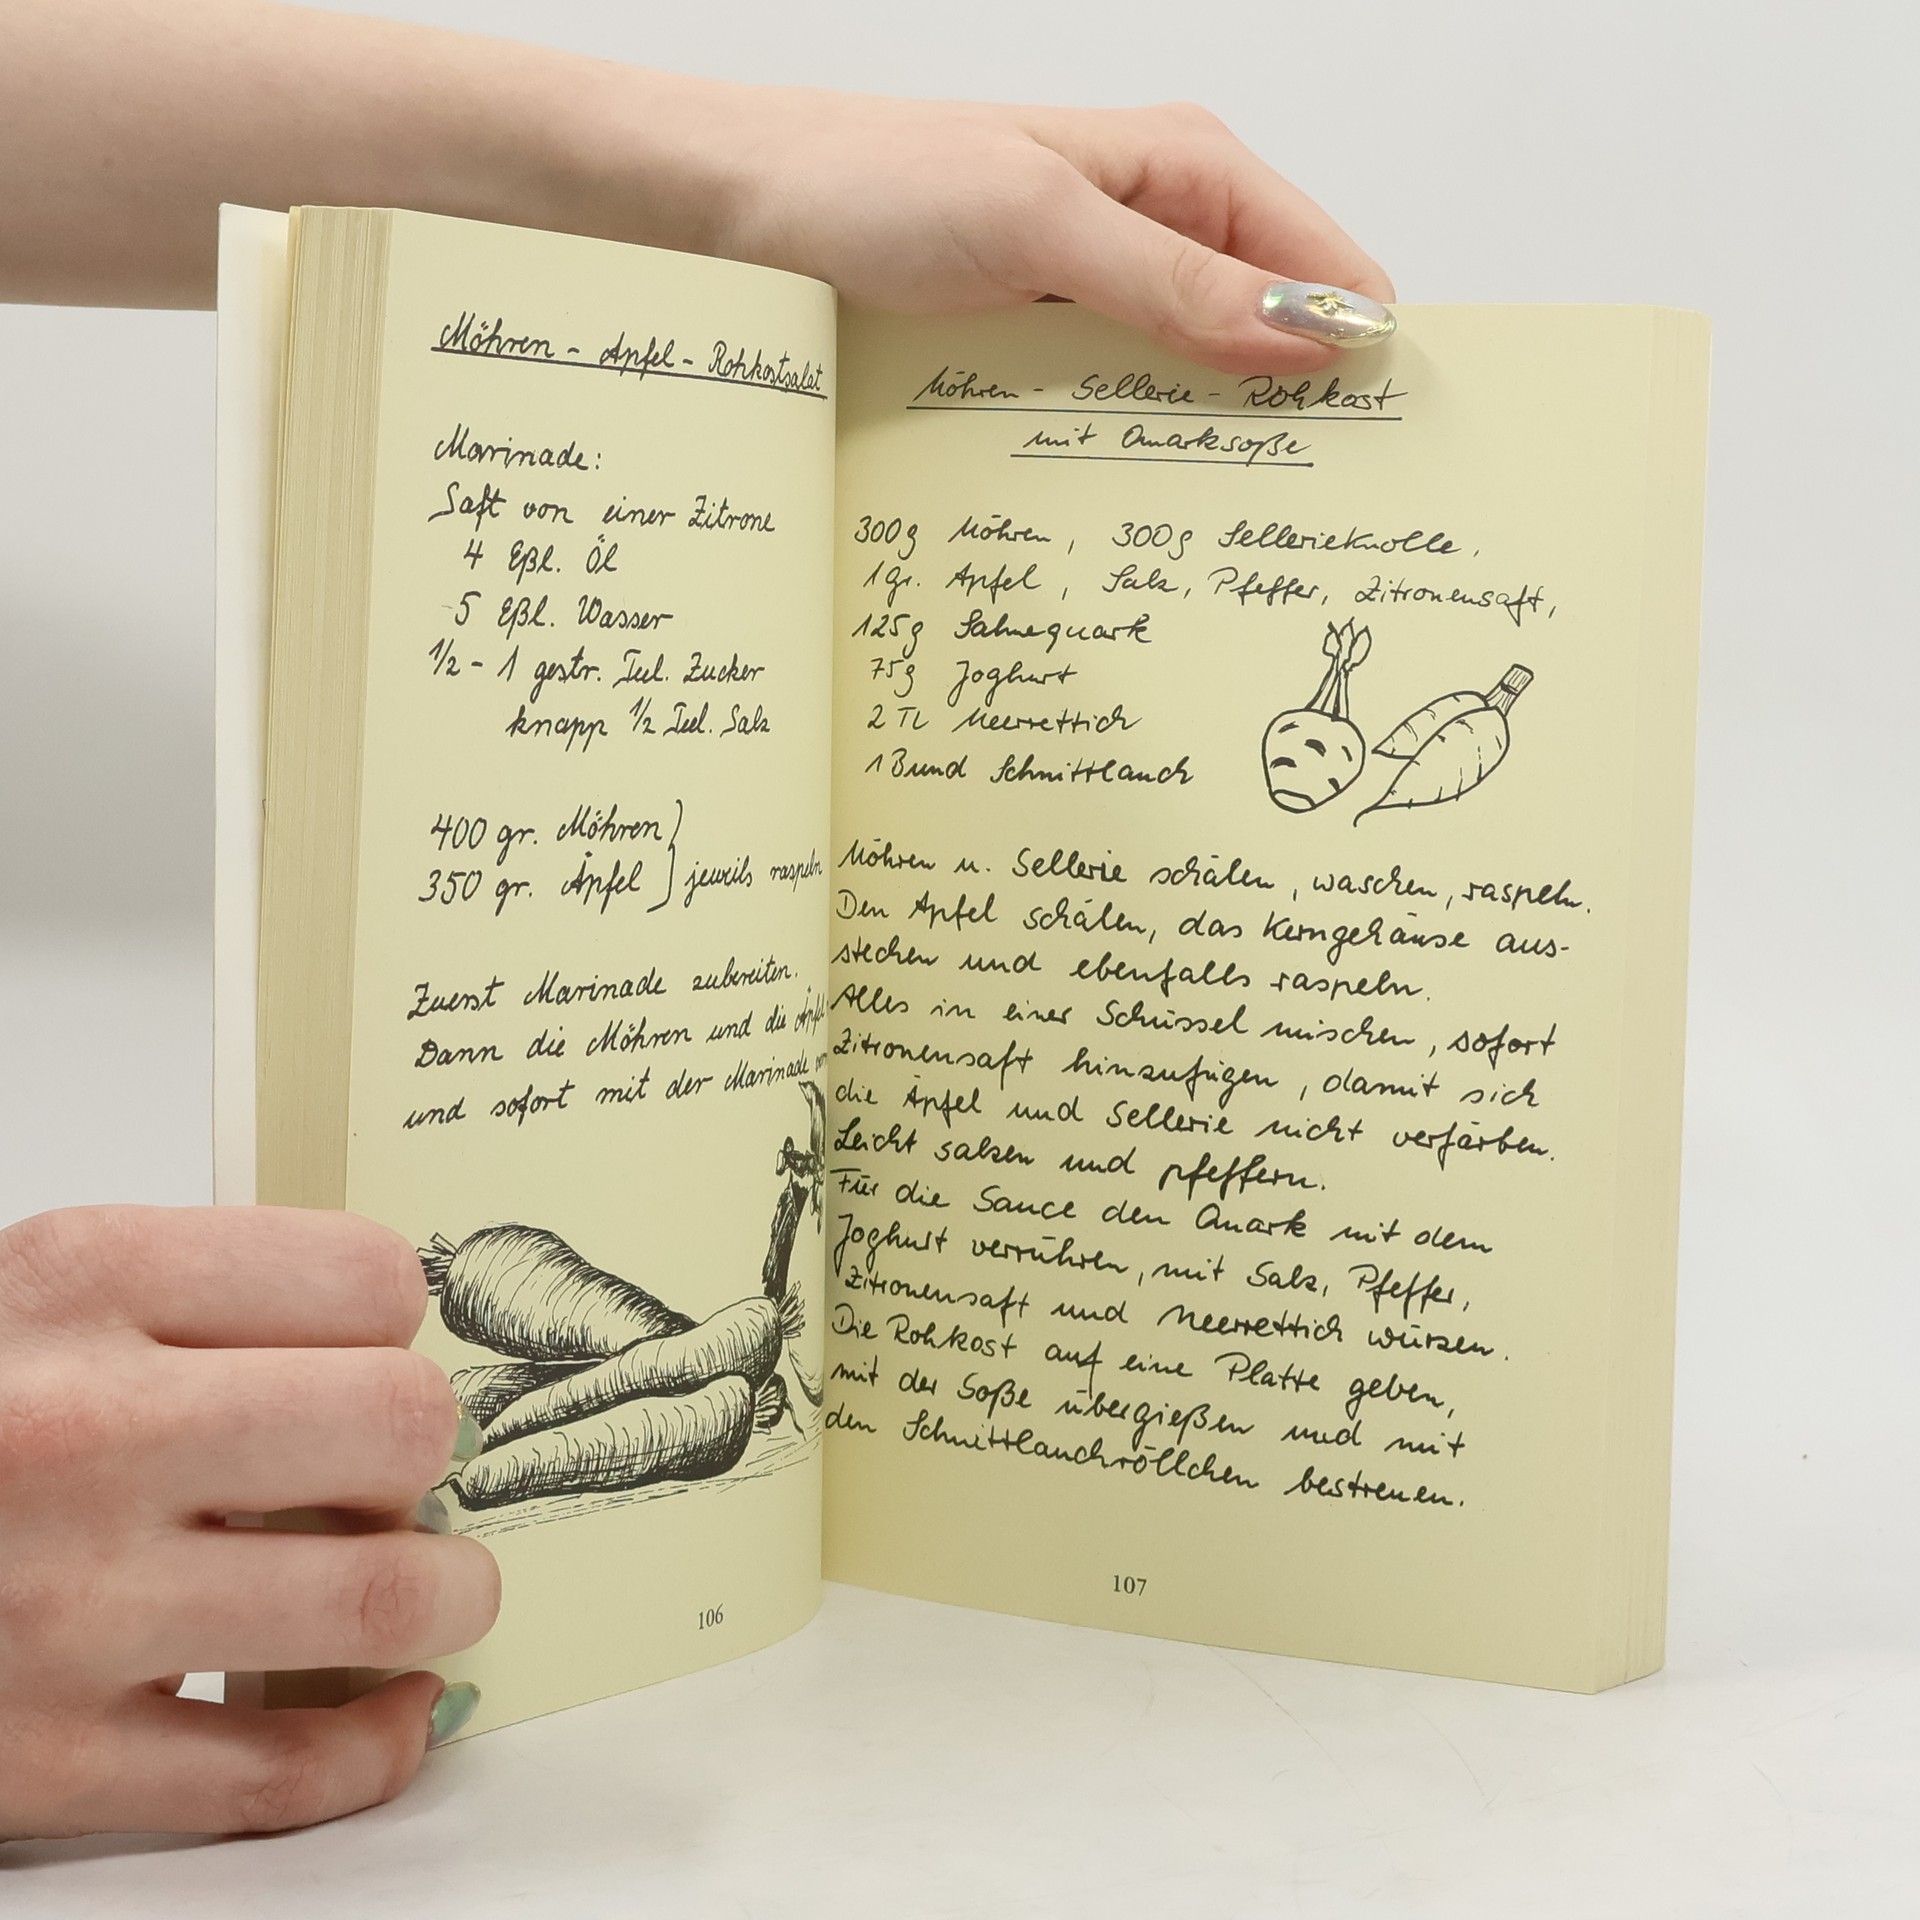 Möhren - Apfel - Rohkostsalat
Marinade:
Saft von einer Zitrone
4 Eßl. Öl
5 Eßl. Wasser
1/2 - 1 gestr. Teel. Zucker
knapp 1/2 Teel. Salz
400 gr. Möhren )
350 gr. Äpfel ) jeweils raspeln
Zuerst Marinade zubereiten.
Dann die Möhren und die Äpfel
und sofort mit der Marinade
106
Möhren - Sellerie - Rohkost
mit Quarksoße
300g Möhren, 300g Sellerieknolle,
1 gr. Apfel, Salz, Pfeffer, Zitronensaft,
125g Sahnequark
75g Joghurt
2 TL Meerrettich
1 Bund Schnittlauch
Möhren u. Sellerie schälen, waschen, raspeln.
Den Apfel schälen, das Kerngehäuse aus-
stechen und ebenfalls raspeln.
Alles in einer Schüssel mischen, sofort
Zitronensaft hinzufügen, damit sich
die Äpfel und Sellerie nicht verfärben.
Leicht salzen und pfeffern.
Für die Sauce den Quark mit dem
Joghurt verrühren, mit Salz, Pfeffer,
Zitronensaft und Meerrettich würzen.
Die Rohkost auf eine Platte geben,
mit der Soße übergießen und mit
den Schnittlauchröllchen bestreuen.
107